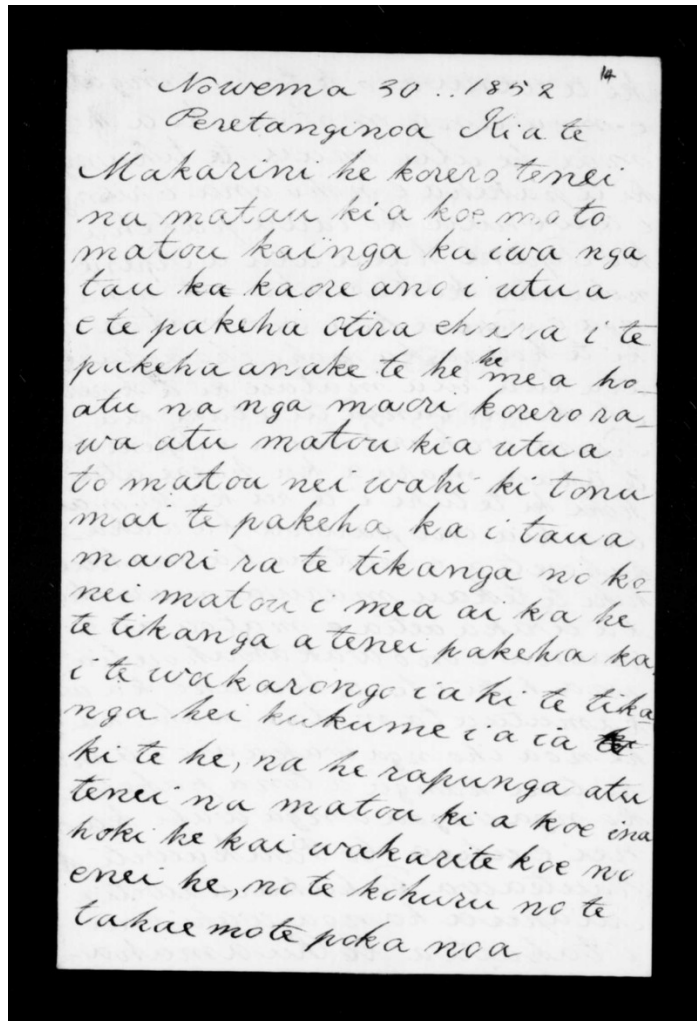 14
Nowema 30 .. 1852
Peretanginoa Kia te
Makarini he korero tenei
na matau kia koe mo to
matou kaïnga ka iwa nga
tau ka kaore ano i utu a
e te pakeha otira ehara i te
pakeha anake te he he mea ho
atu na nga maori korero ra_
wa atu matou kia utu a
to matou nei wahi ki tonu
mai te pakeha ka i taua
maori ra te tikanga no ko
nei matou i mea ai ka he
te tikanga a tenei pakeha ka
i te wakarongo ia ki te tika
nga hei kukume i a ia
ki te he, na he rapunga atu
tenei na matou ki a koe ina
hoki he kai wakarite koe no
enei he, no te kohuru no te
tahae mo te poka noa